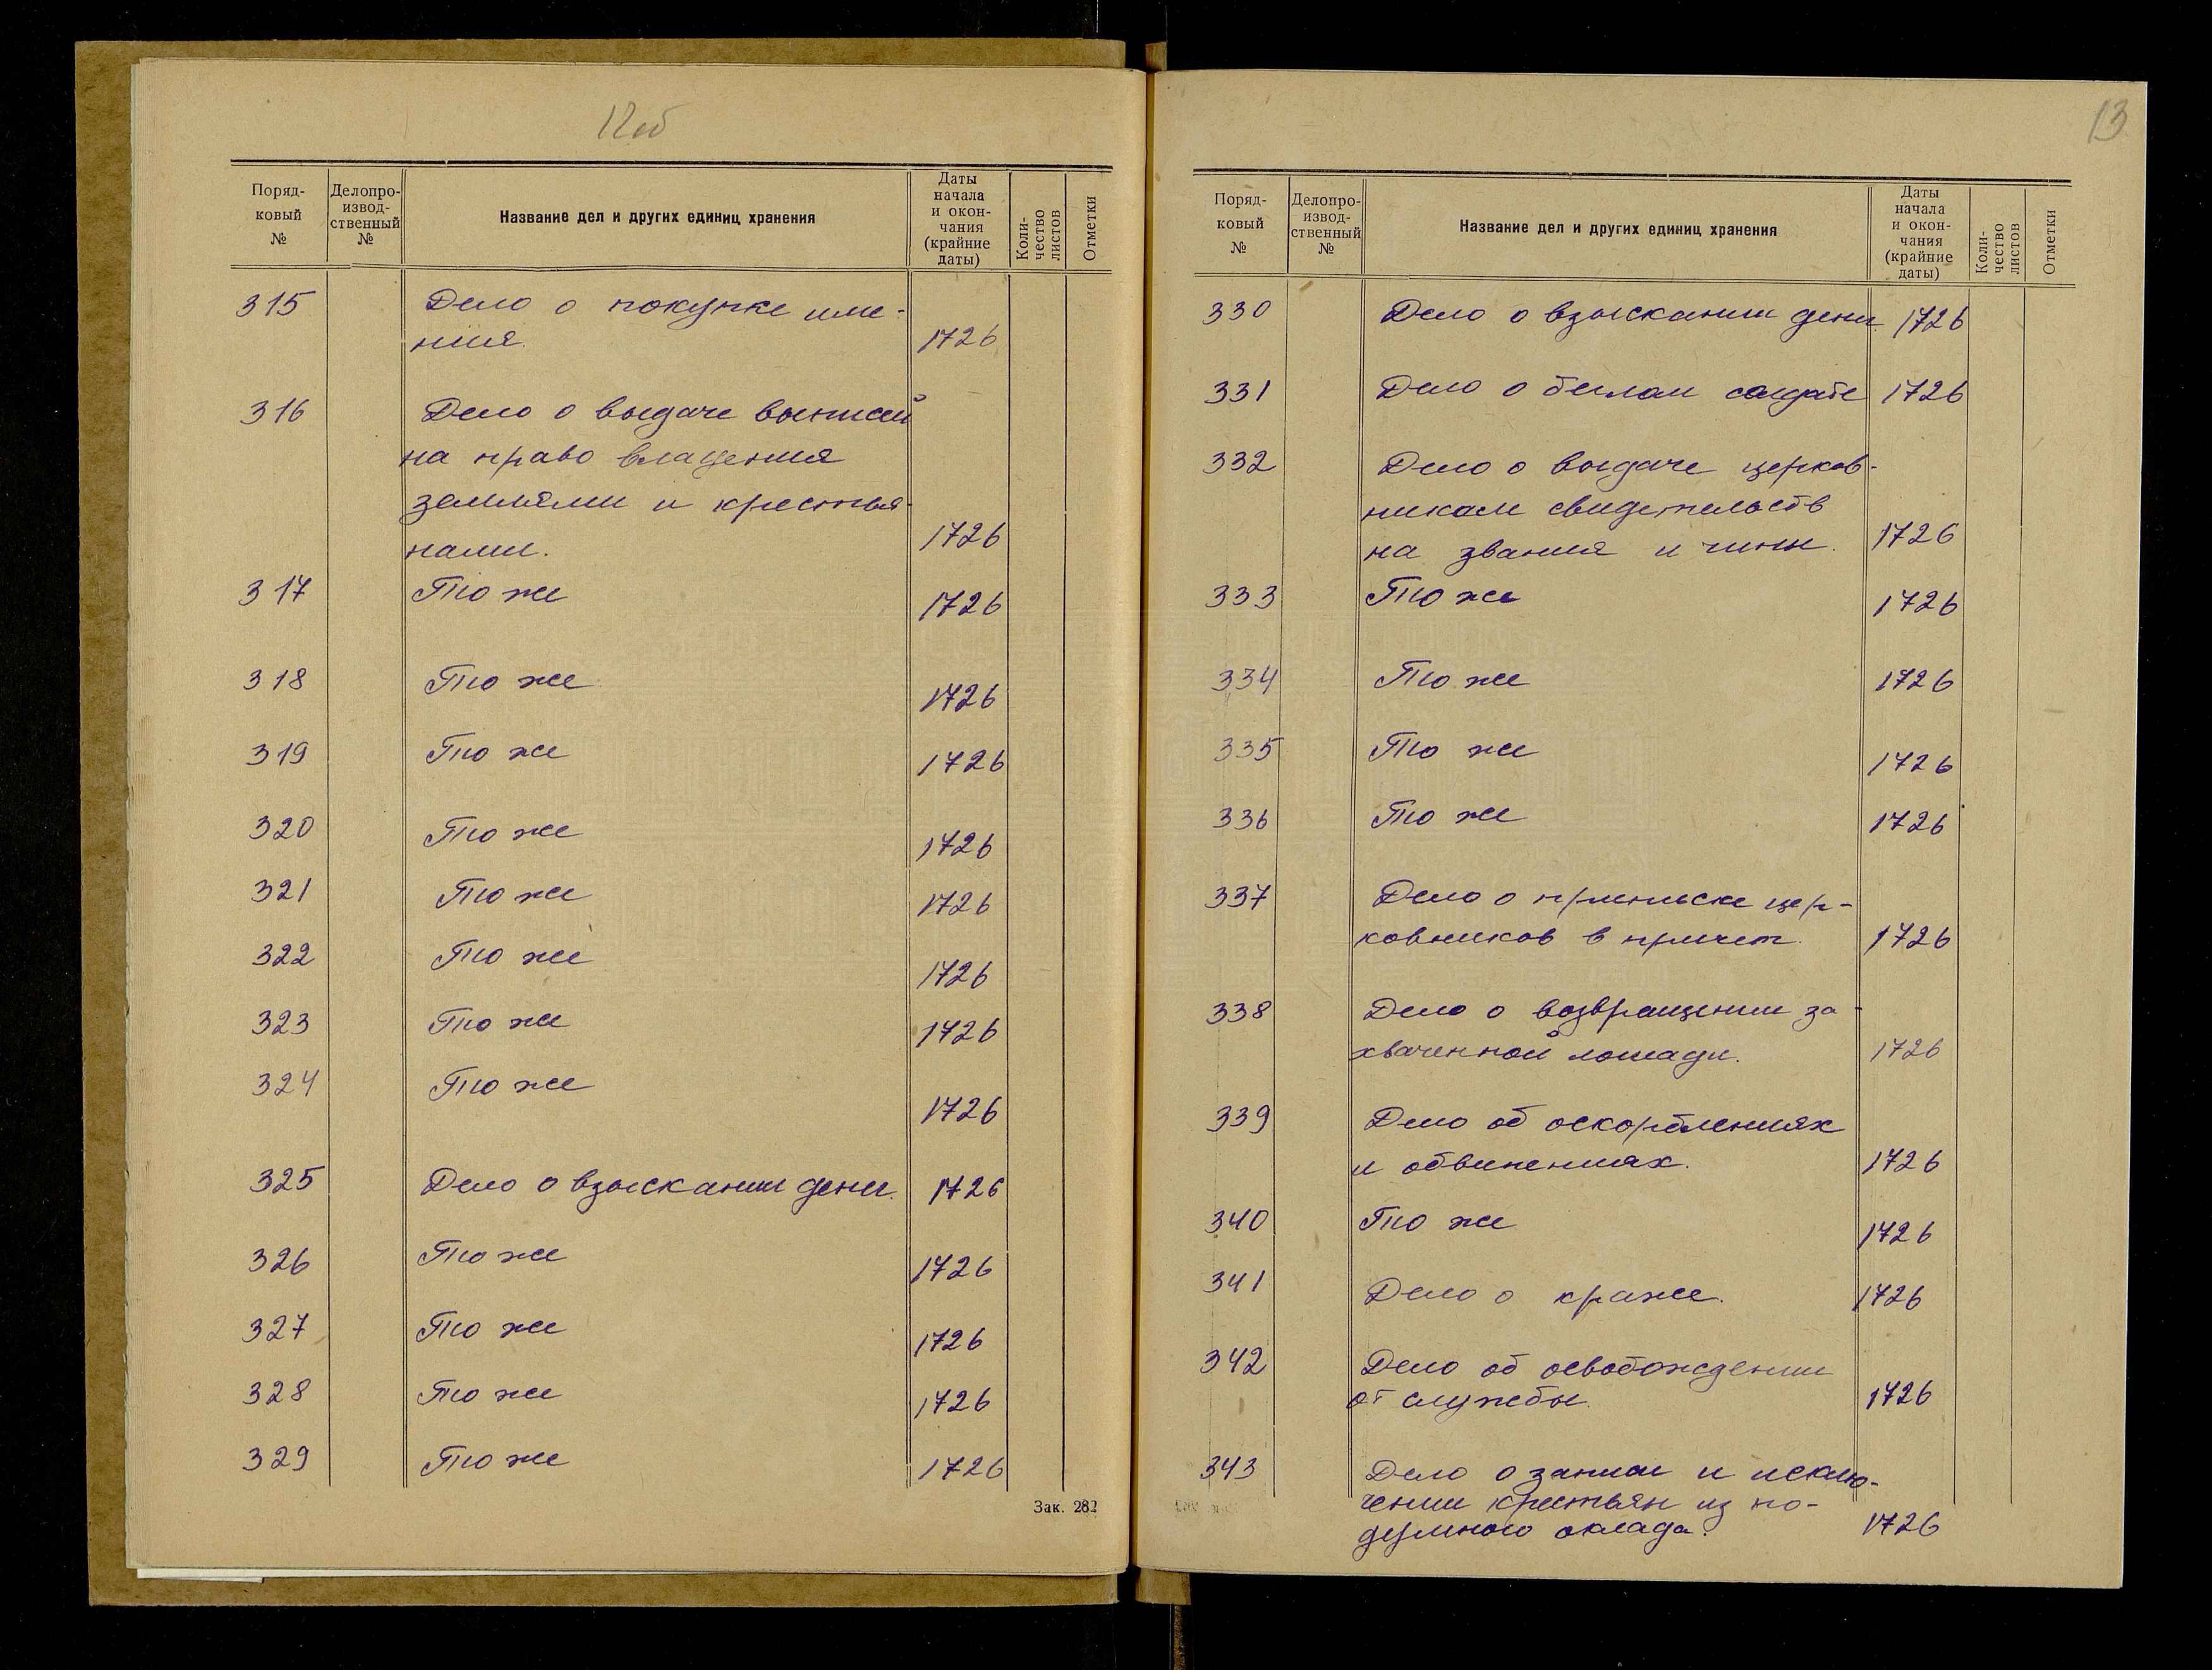 12об
Поряд-
ковый
№
Делопро-
извод-
ственный
№
Название дел и других единиц хранения
Даты
начала
и окон-
чания
(крайние
даты)
Коли-
чество
листов
Отметки
315 Дело о покупке име-
ния. 1726
316 Дело о выдаче выписей
на право владения
землями и крестья-
нами. 1726
317 То же 1726
318 То же 1726
319 То же 1726
320 То же 1726
321 То же 1726
322 То же 1726
323 То же 1726
324 То же 1726
325 Дело о взыскании денег. 1726
326 То же 1726
327 То же 1726
328 То же 1726
329 То же 1726
Зак. 282
13
Поряд-
ковый
№
Делопро-
извод-
ственный
№
Название дел и других единиц хранения
Даты
начала
и окон-
чания
(крайние
даты)
Коли-
чество
листов
Отметки
330 Дело о взыскании денег 1726
331 Дело о беглом солдате 1726
332 Дело о выдаче церков-
никам свидетельств
на звания и чины. 1726
333 То же 1726
334 То же 1726
335 То же 1726
336 То же 1726
337 Дело о приписке цер-
ковников в причет. 1726
338 Дело о возвращении за-
хваченной лошади. 1726
339 Дело об оскорблениях
и обвинениях. 1726
340 То же 1726
341 Дело о краже. 1726
342 Дело об освобождении
от службы. 1726
343 Дело о записи и исклю-
чении крестьян из по-
душного оклада. 1726